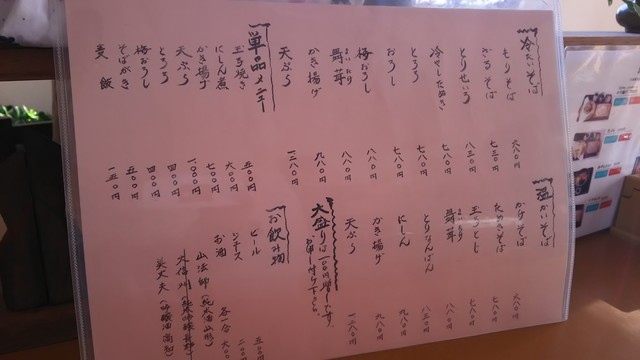 冷たいそば
もりそば 六八〇円
ざるそば 七三〇円
とりせいろ 八三〇円
冷やしたぬき 七八〇円
とろろ 七八〇円
おろし 七八〇円
梅おろし 八八〇円
舞茸 八八〇円
かき揚げ 九八〇円
天ぷら 一二八〇円
単品メニュー
玉子焼き 五〇〇円
にしん煮 六〇〇円
かき揚げ 七〇〇円
天ぷら 一〇〇〇円
とろろ 四〇〇円
梅おろし 四〇〇円
そばがき 五〇〇円
麦飯 一五〇円
温かいそば
かけそば 六八〇円
たぬきそば 七八〇円
玉子とじ 七八〇円
舞茸 八八〇円
とりなんばん 八三〇円
にしん 九八〇円
かき揚げ 九八〇円
天ぷら 一二八〇円
大盛りは一〇〇円増しです。
お申し付け下さい。
お飲み物
ビール 五〇〇
ジュース 二〇〇
お酒 各一合 六〇〇
山法師(純米酒山形)
美丈夫(吟醸酒高知)